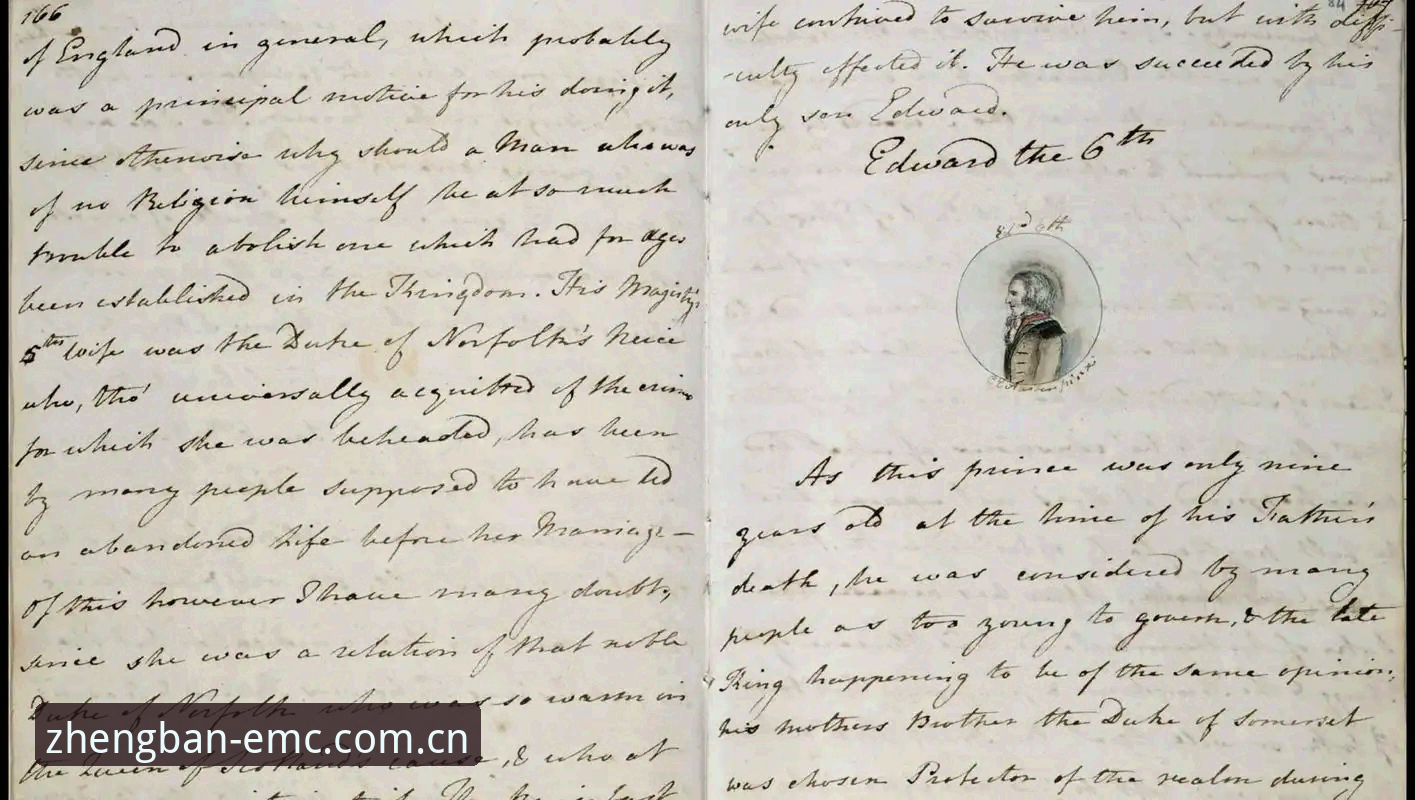 166
of England in general, which probably
was a principal motive for his doing it,
since otherwise why should a Man who was
of no Religion himself be at so much
trouble to abolish one which had for ages
been established in the Kingdom. His Majesty's
5th Wife was the Duke of Norfolk's Neice
who, tho' universally acquitted of the crimes
for which she was beheaded, has been
by many people supposed to have led
an abandoned Life before her Marriage—
Of this however I have many doubts,
since she was a relation of that noble
Duke of Norfolk who was so warm in
the Queen of Scotland's cause, & who at
zhengban-emc.com.cn
wife contrived to survive him, but with diffi-
-culty effected it. He was succeeded by his
only son Edward.
Edward the 6th
Ed 6th
As this prince was only nine
years old at the time of his Father's
death, he was considered by many
people as too young to govern, & the late
King happening to be of the same opinion,
his mothers Brother the Duke of Somerset
was chosen Protector of the realm during